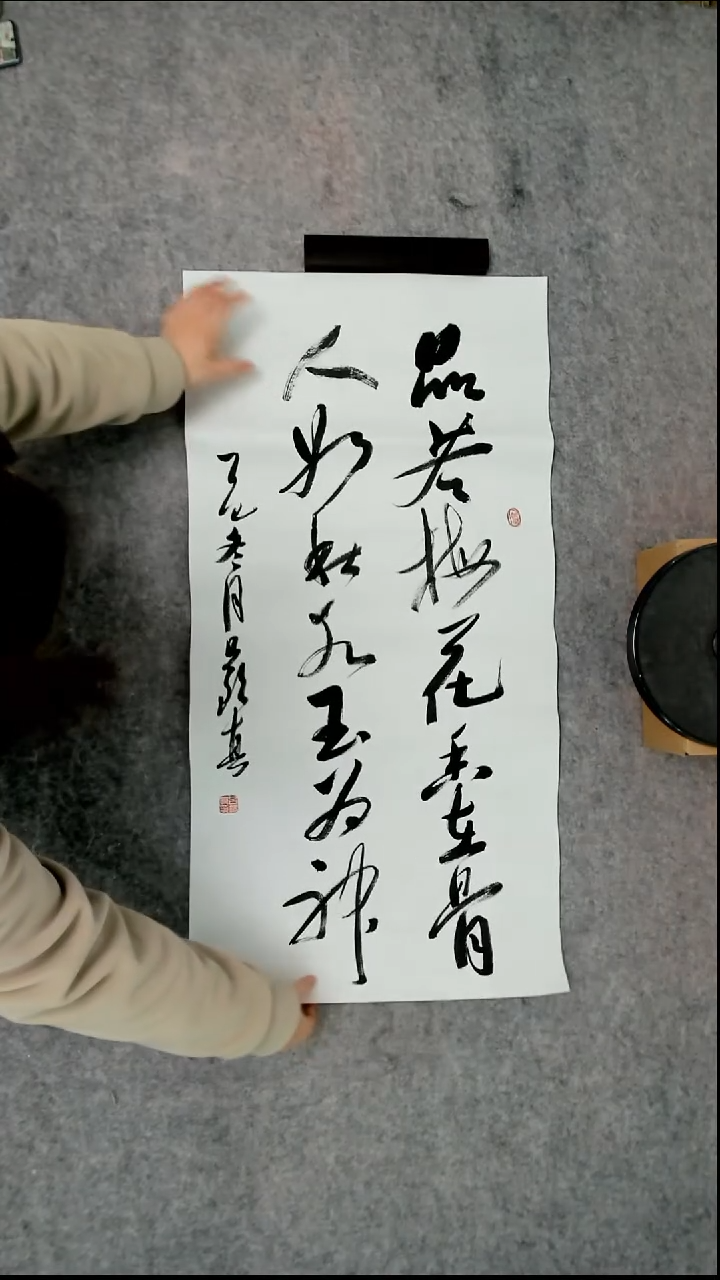 品若梅花香在骨
人如秋水玉为神
冬月
真